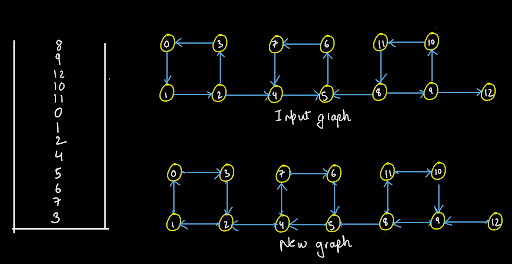 8
9
12
10
11
0
1
2
4
5
6
7
3
0 3 7 6 11 10
1 2 4 5 8 9 12
Input graph
0 3 7 6 11 10
1 2 4 5 8 9 12
New graph